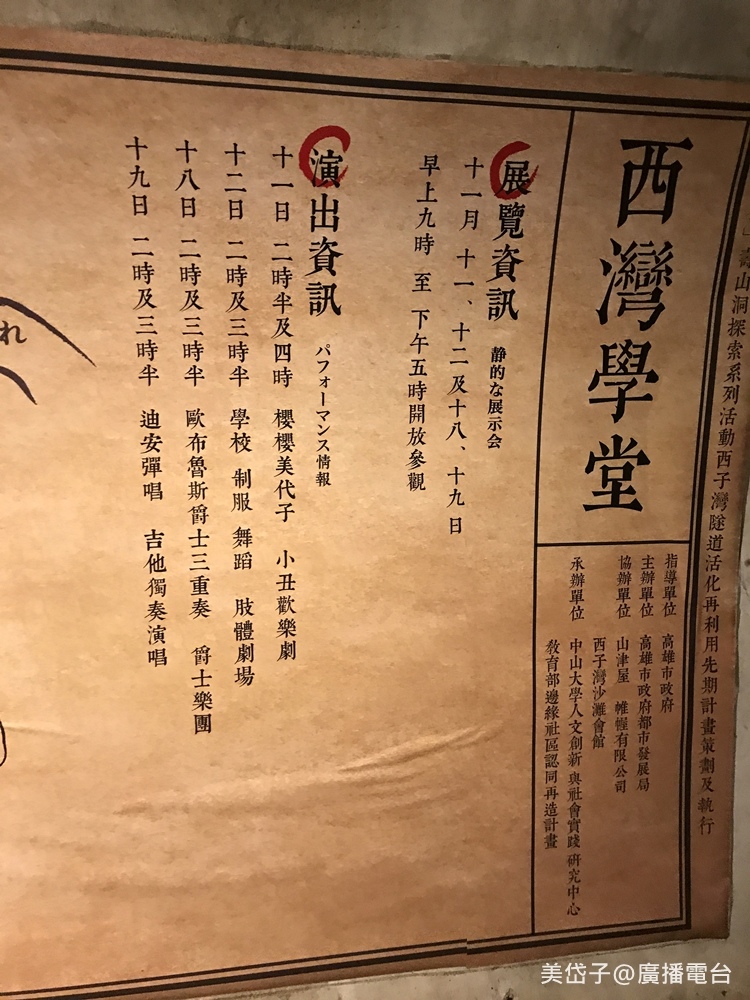 壽山洞探索系列活動西子灣隧道活化再利用先期計畫策劃及執行
西灣學堂
指導單位 高雄市政府
主辦單位 高雄市政府都市發展局
協辦單位 山津屋 帷幄有限公司
西子灣沙灘會館
承辦單位 中山大學人文創新與社會實踐研究中心
教育部邊緣社區認同再造計畫
展覽資訊 静的な展示会
十一月 十一、十二及十八、十九日
早上九時 至 下午五時開放參觀
演出資訊 パフォーマンス情報
十一日 二時半及四時 櫻櫻美代子 小丑歡樂劇
十二日 二時及三時半 學校 制服 舞蹈 肢體劇場
十八日 二時及三時半 歐布魯斯爵士三重奏 爵士樂團
十九日 二時及三時半 迪安彈唱 吉他獨奏演唱
れ
美岱子@廣播電台